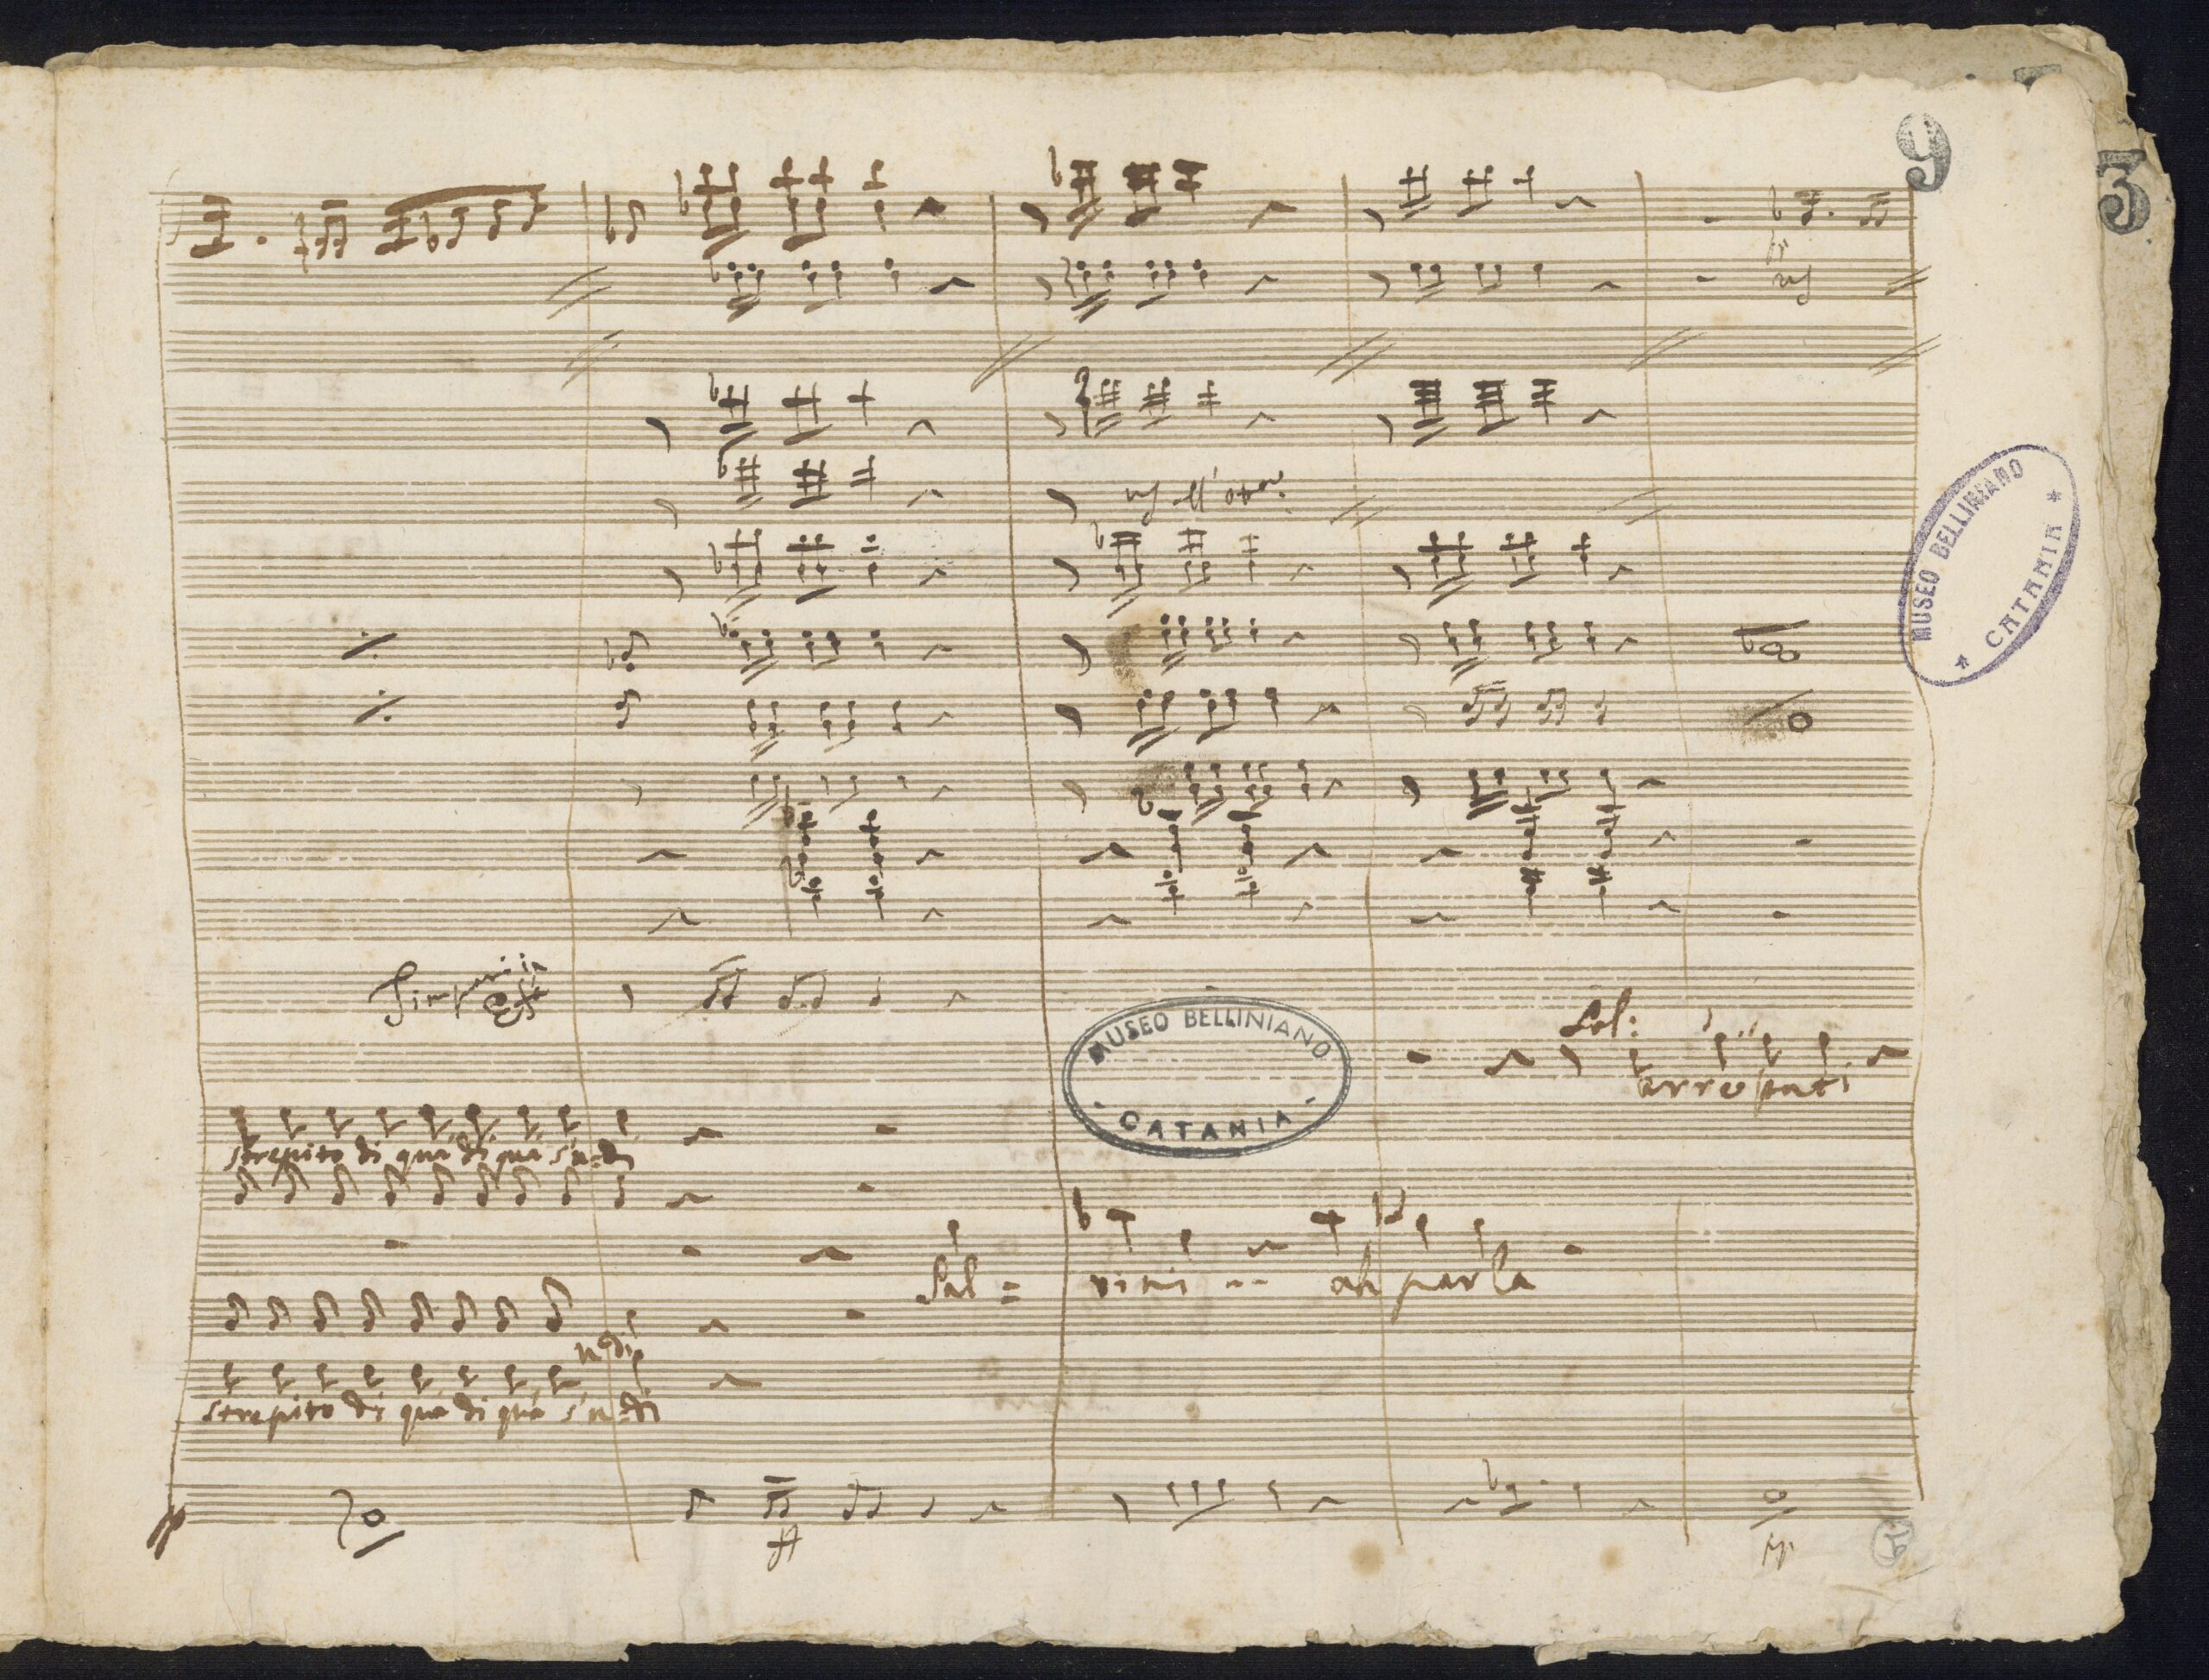 9
3
MUSEO BELLINIANO
CATANIA
Timpani
MUSEO BELLINIANO
CATANIA
Sal:
arrestati
strepito di quà di quà s'u=dì
Sal = vini -- ah parla
n'odi
strepito di quà di quà s'u=dì
pp
ff
pp